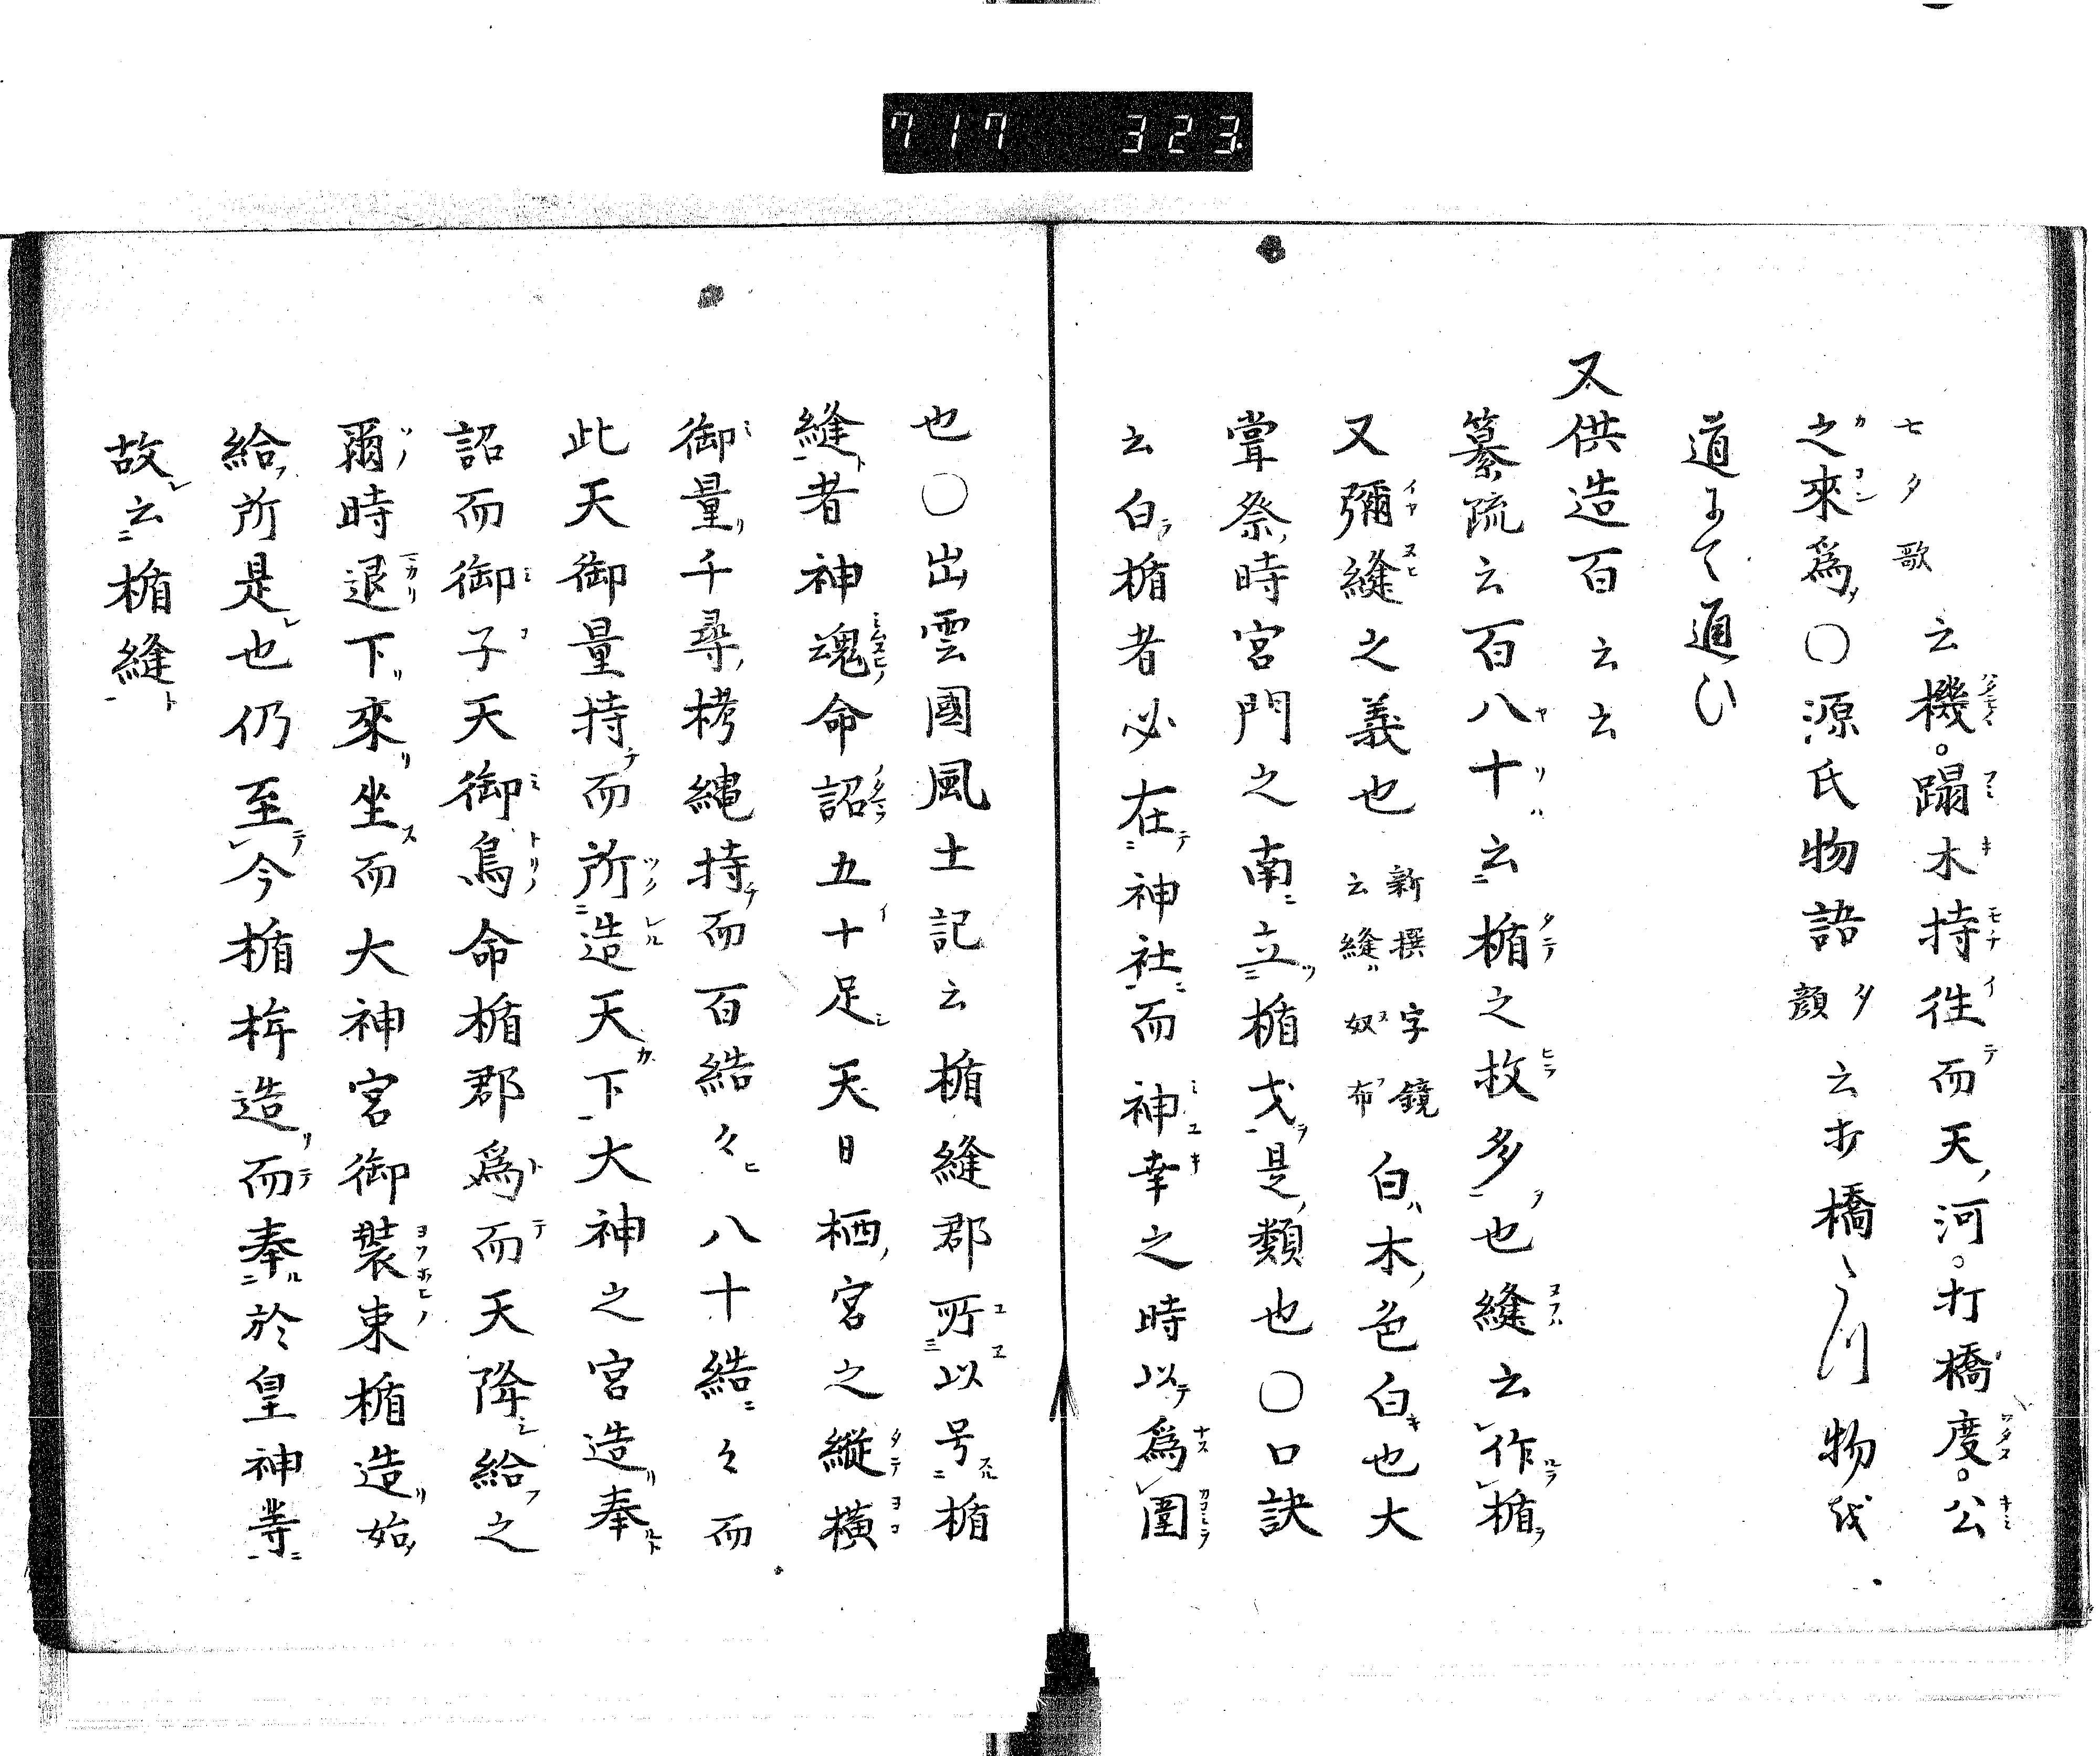 717 323
七夕歌云機。蹋木持徃而天ノ河。打橋度。公
之來爲○源氏物語夕顔云打橋
道まて通ひ
又供造百云云
纂疏云百八十云楯之枚多也縫云作楯
又彌縫之義也新撰字鏡云縫奴布白木色白也大
甞祭時宮門之南立楯戈是類也○口訣
云白楯者必在神社而神幸之時以爲圍
也○出雲國風土記云楯縫郡所以号楯
縫者神魂命詔五十足天日栖宮之縱橫
御量千尋栲縄持而百結々八十結々而
此天御量持而所造天下大神之宮造奉
詔而御子天御鳥命楯郡爲而天降給之
爾時退下來坐而大神宮御裝束楯造始
給所是也仍至今楯桙造而奉於皇神等
故云楯縫